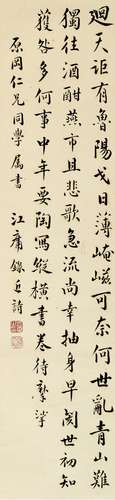 迴天詎有魯陽戈日薄崦嵫可奈何世亂青山難
獨往酒酣燕市且悲歌急流尚幸抽身早閱世初知
獲咎多何事中年要陶寫縱橫書卷待摩挲
原岡仁兄同學屬書 江庸錄近詩